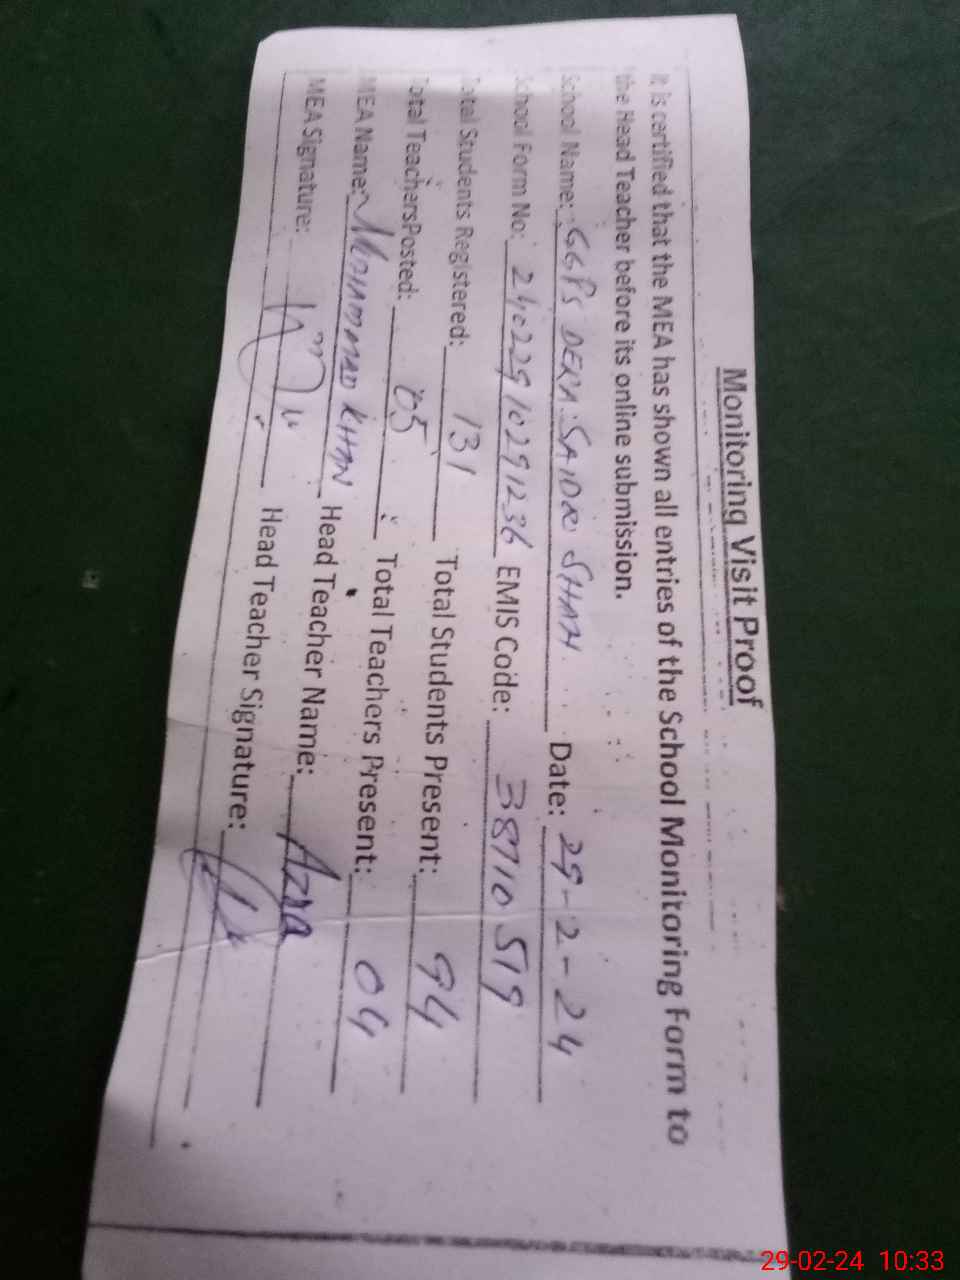 Monitoring Visit Proof
It is certified that the MEA has shown all entries of the School Monitoring Form to
the Head Teacher before its online submission.
School Name: GGPS DERA SAIDU SHAH Date: 29-2-24
School Form No: 24022910291236 EMIS Code: 38710519
Total Students Registered: 131 Total Students Present: 94
Total TeachersPosted: 05 Total Teachers Present: 04
MEA Name: MOHAMMAD KHAN Head Teacher Name: Azra
MEA Signature: Head Teacher Signature:
29-02-24 10:33